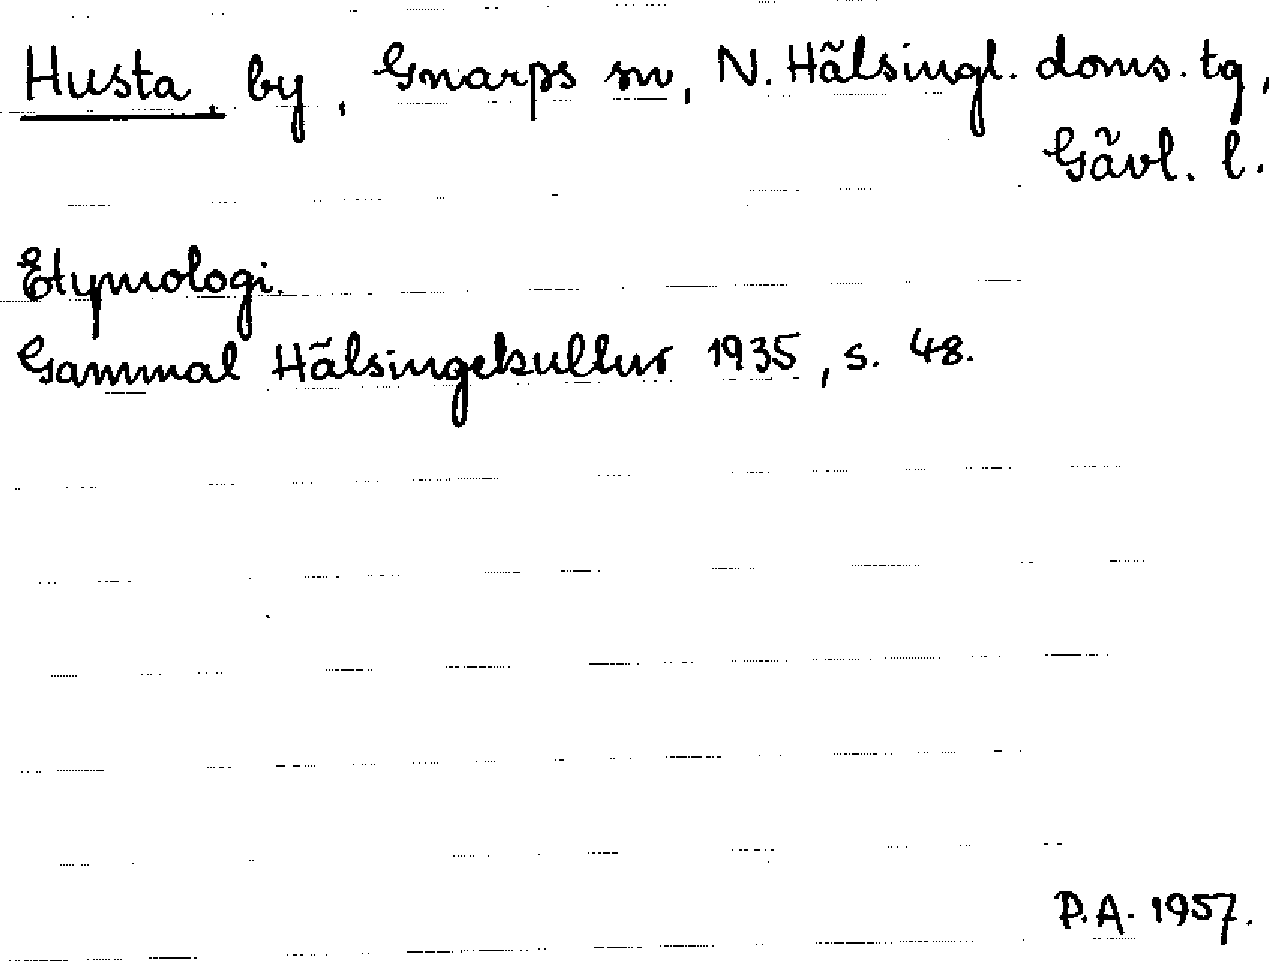 Husta, by, Gnarps sn, N. Hälsingl. doms. tg,
Gävl. l.
Etymologi.
Gammal Hälsingekultur 1935, s. 48.
P.A. 1957.